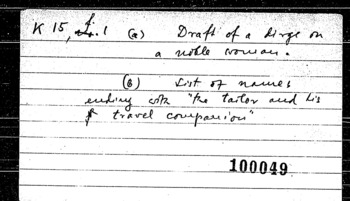 K 15, f. 1 (a) Draft of a dirge on
a noble woman.
(b) List of names
ending with "the tailor and his
travel companion"
100049